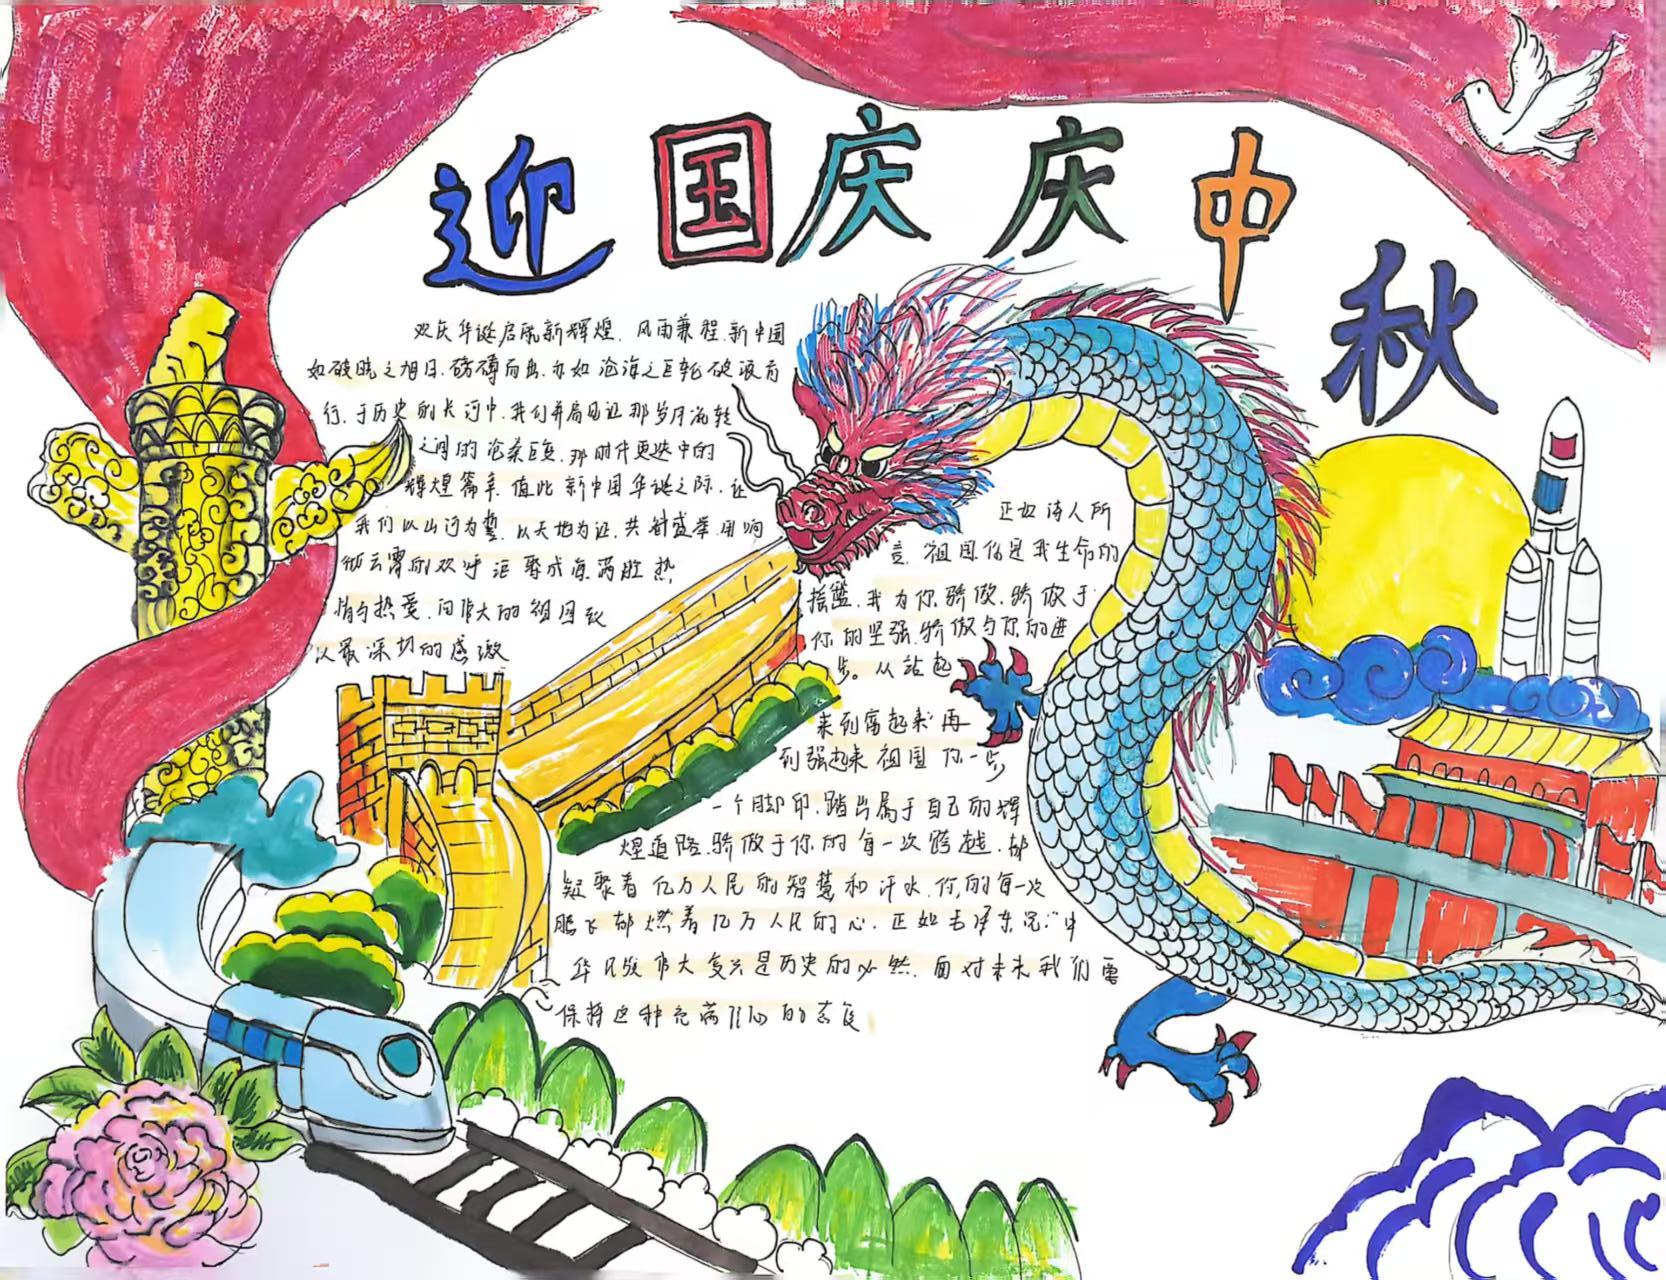 迎国庆 庆中秋
欢庆华诞启航新辉煌.风雨兼程.新中国
如破晓之旭日.磅礴而出.亦如沧海之巨轮破浪前
行.于历史的长河中.我们并肩见证那岁月流转
之间的沧桑巨变.那时代更迭中的
辉煌篇章.值此新中国华诞之际.让
我们以山河为誓.以天地为证.共襄盛举用响
彻云霄的欢呼汇聚成海满腔热
情与热爱.向伟大的祖国致
以最深切的感激
正如诗人所
言.祖国你是我生命的
摇篮.我为你骄傲.骄傲于
你的坚强.骄傲与你的进
步。从站起
来到富起来再
到强起来祖国你一步
一个脚印.踏出属于自己的辉
煌道路.骄傲于你的每一次跨越.都
凝聚着亿万人民的智慧和汗水.你的每一次
腾飞都燃着亿万人民的心.正如毛泽东说:“中
华民族伟大复兴是历史的必然.面对未来我们需
保持这种充满信心的态度